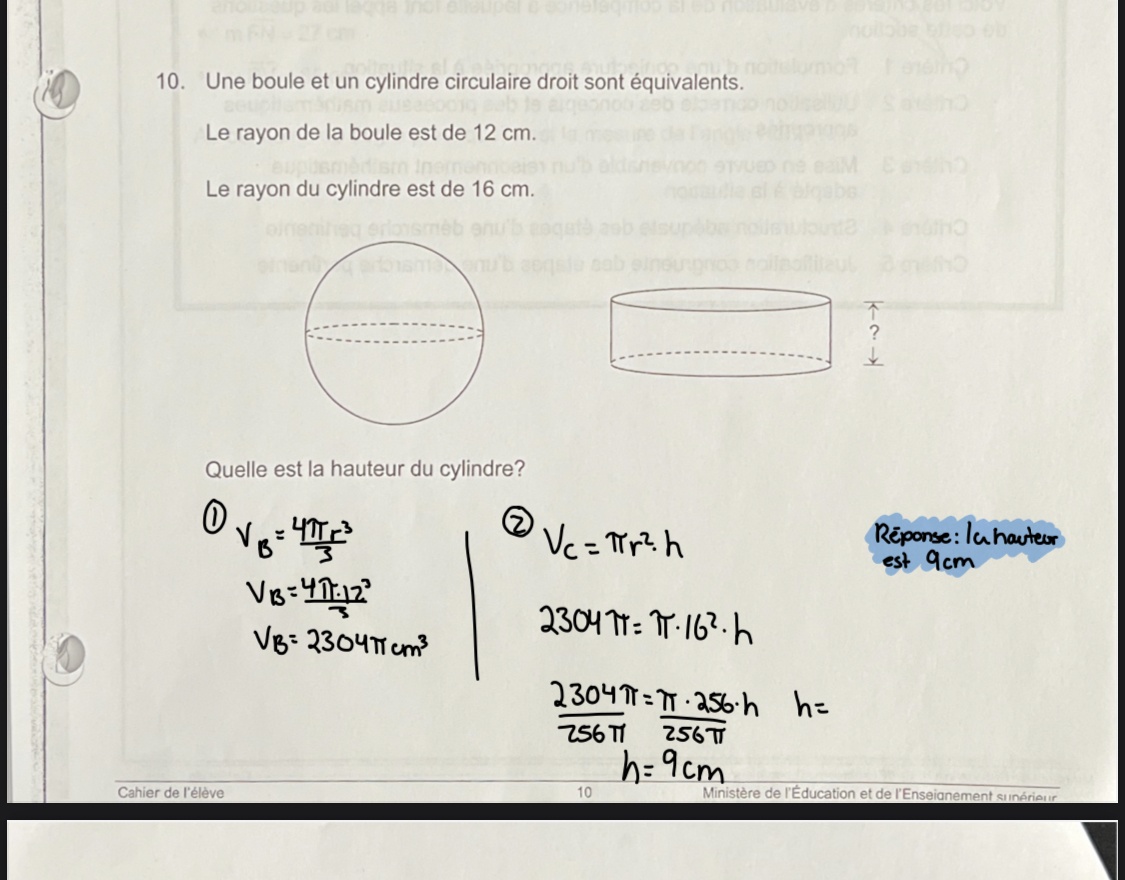 10. Une boule et un cylindre circulaire droit sont équivalents.
Le rayon de la boule est de 12 cm.
Le rayon du cylindre est de 16 cm.
?
Quelle est la hauteur du cylindre?
① V_B = 4πr³/3
V_B = 4π·12³/3
V_B = 2304π cm³
② V_C = πr²·h
2304π = π·16²·h
2304π/256π = π·256·h/256π h=
h = 9cm
Réponse: la hauteur
est 9cm
Cahier de l'élève 10 Ministère de l'Éducation et de l'Enseignement supérieur